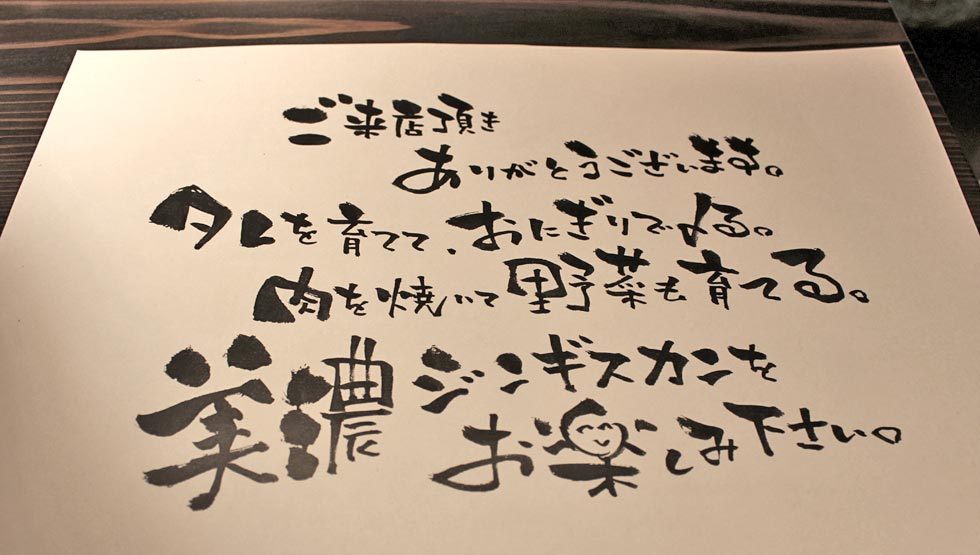 ご来店頂き
ありがとうございます。
タレを育てて、おにぎりで〆る。
肉を焼いて野菜も育てる。
美濃ジンギスカンを
お楽しみ下さい。